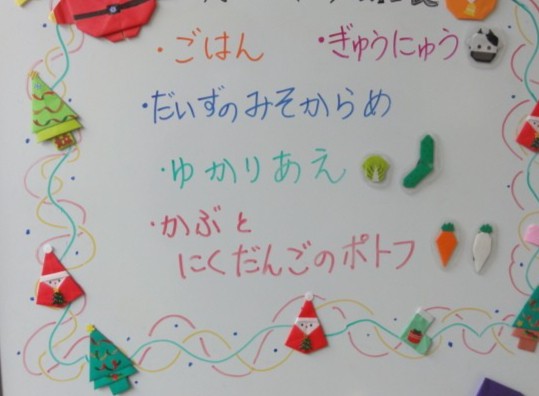 ・ごはん ・ぎゅうにゅう
・だいずのみそからめ
・ゆかりあえ
・かぶと
にくだんごのポトフ